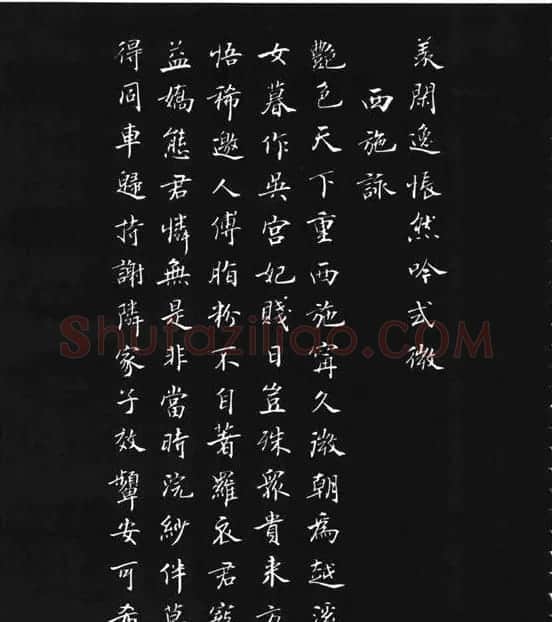 羨閑逸悵然吟式微
西施詠
艷色天下重西施甯久微朝爲越溪
女暮作吳宮妃賤日豈殊眾貴来方
悟稀邀人傅脂粉不自著羅衣君寵
益嬌態君憐無是非當時浣紗伴莫
得同車歸持謝隣家子效顰安可希
Shufaziliao.COM